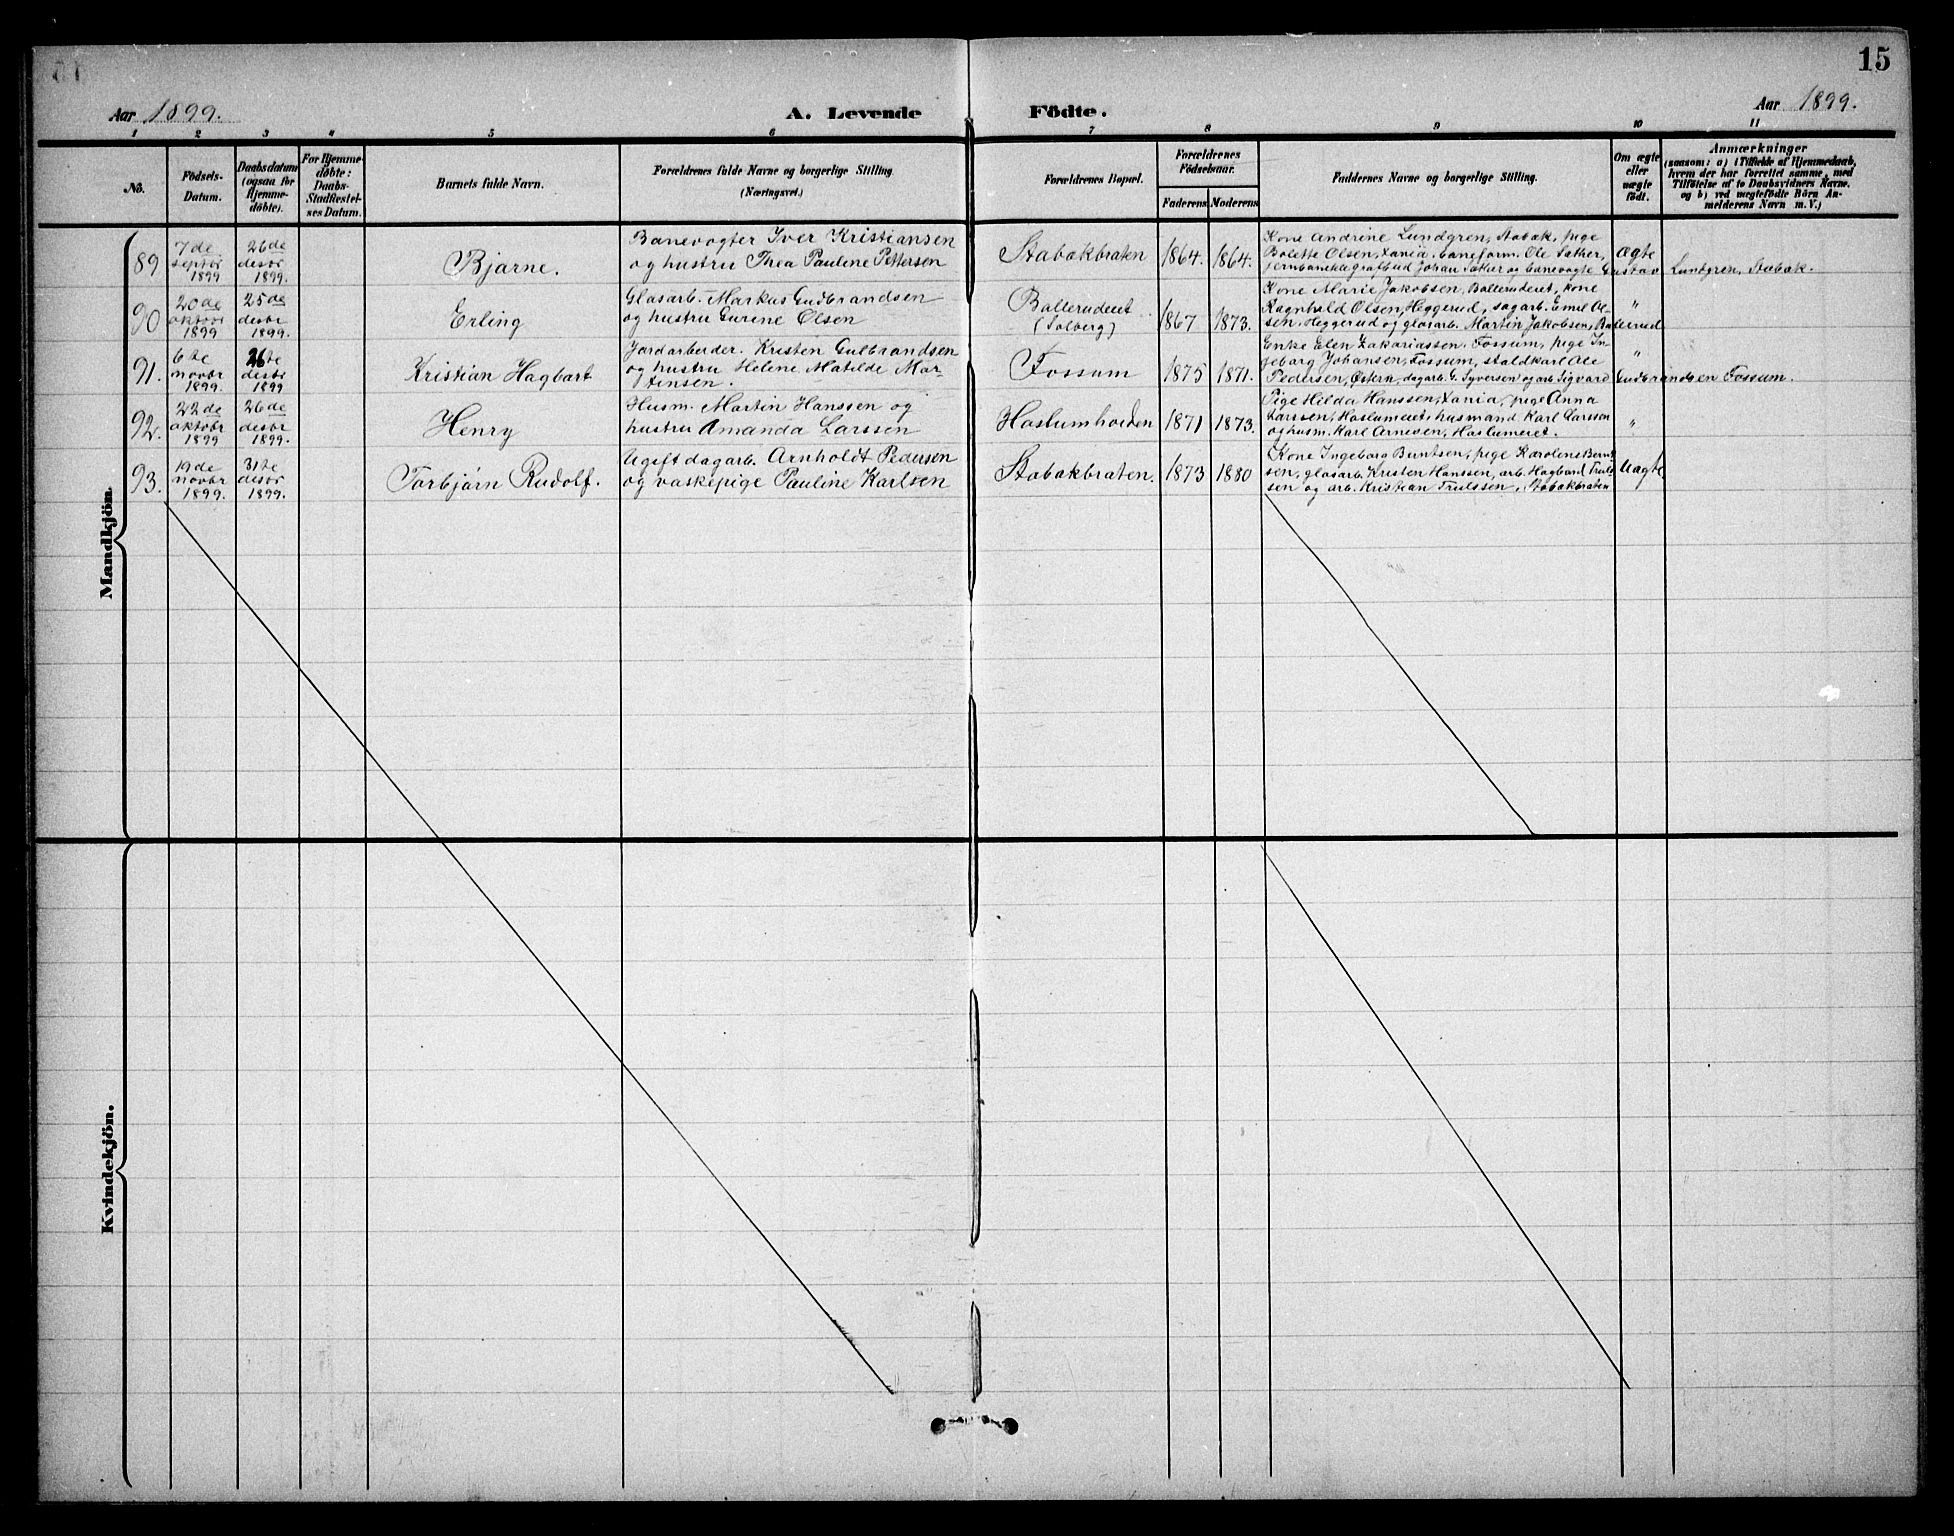 15
Aar 1899.
A. Levende Födte.
Aar 1899.
1 2 3 4 5 6 7 8 9 10 11
No.
Födsels-
Datum.
Daabsdatum
(ogsaa for
Hjemme-
döbte).
For Hjemme-
döbte:
Daabs-
Stadfæstel-
ses Datum.
Barnets fulde Navn.
Forældrenes fulde Navne og borgerlige Stilling
(Næringsvei.)
Forældrenes Bopæl.
Forældrenes
Födselsaar.
Faderens
Moderens
Faddernes Navne og borgerlige Stilling.
Om ægte
eller
uægte
födt.
Anmærkninger
(saasom: a) i Tilfælde af Hjemmedaab,
hvem der har forrettet samme, med
Tilföielse af to Daabsvidners Navne,
og b) ved uægtefödte Börn An-
melderens Navn m. V.)
Mandkjön.
89
7de
septbr
1899
26de
desbr
1899.
Bjarne.
Banevogter Iver Kristiansen
og hustru Thea Pauline Pettersen
Stabækbraten
1864.
1864.
Kone Andrine Lundgren, Stabæk, pige
Bolette Olsen, Xania, baneform. Ole Sather,
jernbanetelegrafbud Johan Sather og banevogte Gustav Lundgren, Stabæk.
Ægte
90
20de
oktobr
1899
25de
desbr
1899.
Erling
Glasarb. Markus Gudbrandsen
og hustru Gurine Olsen
Ballerudeiet
(Solberg)
1867
1873.
Kone Marie Jakobsen, Ballerudeiet, kone
Ragnhild Olsen, Heggerud, sagarb. Emil Ol-
sen, Heggerud og glasarb. Martin Jakobsen, Ballerud
"
91.
6te
novbr
1899.
26te
desbr
1899
Kristian Hagbart
Jordarbeider. Kristen Gulbrandsen
og hustru Helene Matilde Mar-
tinsen.
Fossum
1875
1871.
Enke Elen Zakariassen, Fossum, pige In-
geborg Johansen, Fossum, staldkarl Ole
Pedersen, Østern, dagarb. G. Syversen og arb. Sigvard Gudbrandsen Fossum.
"
92.
22de
oktobr
1899
26de
desbr
1899.
Henry
Husm. Martin Hanssen og
hustru Amanda Larssen
Haslumholden
1871
1873.
Pige Hilda Hanssen, Xania, pige Anna
Larssen, Haslumeiet, husmand Karl Larssen
og husm. Karl Arnesen, Haslumeiet.
"
93.
19de
novbr
1899.
31te
desbr
1899.
Torbjørn Rudolf.
Ugift dagarb. Arnholdt Pedersen
og vaskepige Pauline Karlsen
Stabækbraten.
1873
1880
Kone Ingeborg Berntsen, pige Karoline Bernt-
sen, glasarb. Kristen Hanssen, arb. Hagbard Truls-
sen og arb. Kristian Trulssen, Stabækbraten
Uægte
Kvindekjön.